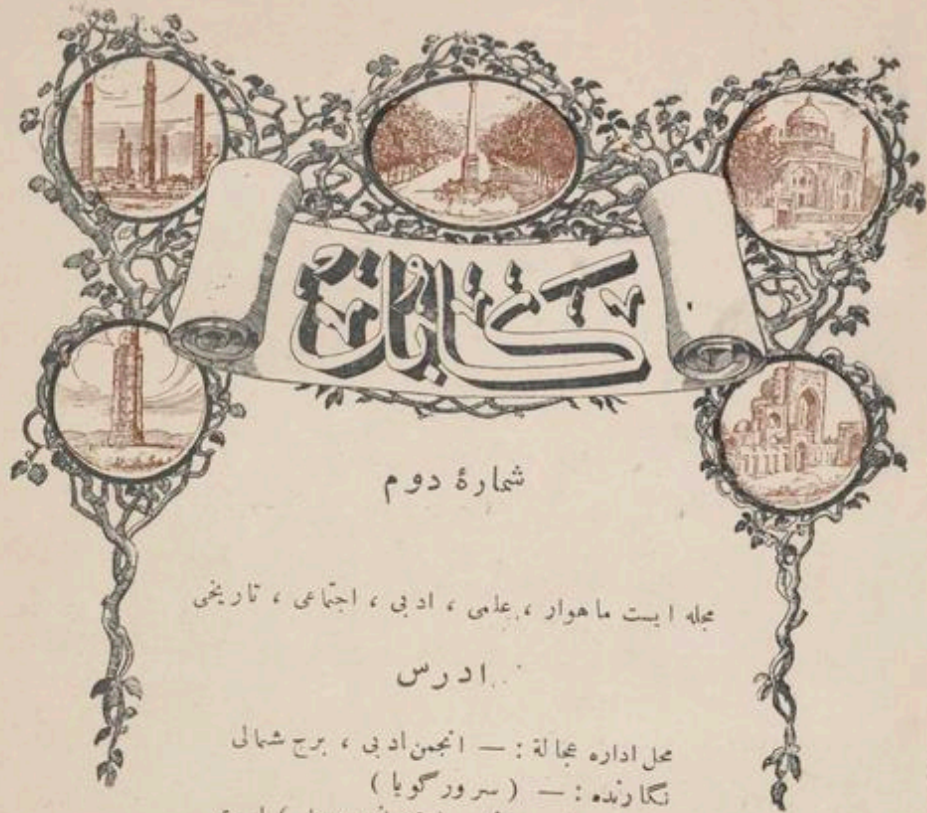 شمارهٔ دوم
مجله ایست ماهوار ، علمی ، ادبی ، اجتماعی ، تاریخی
ادرس
محل اداره عجالة : — انجمن ادبی ، برج شمالی
نگارنده : — ( سرور گویا )